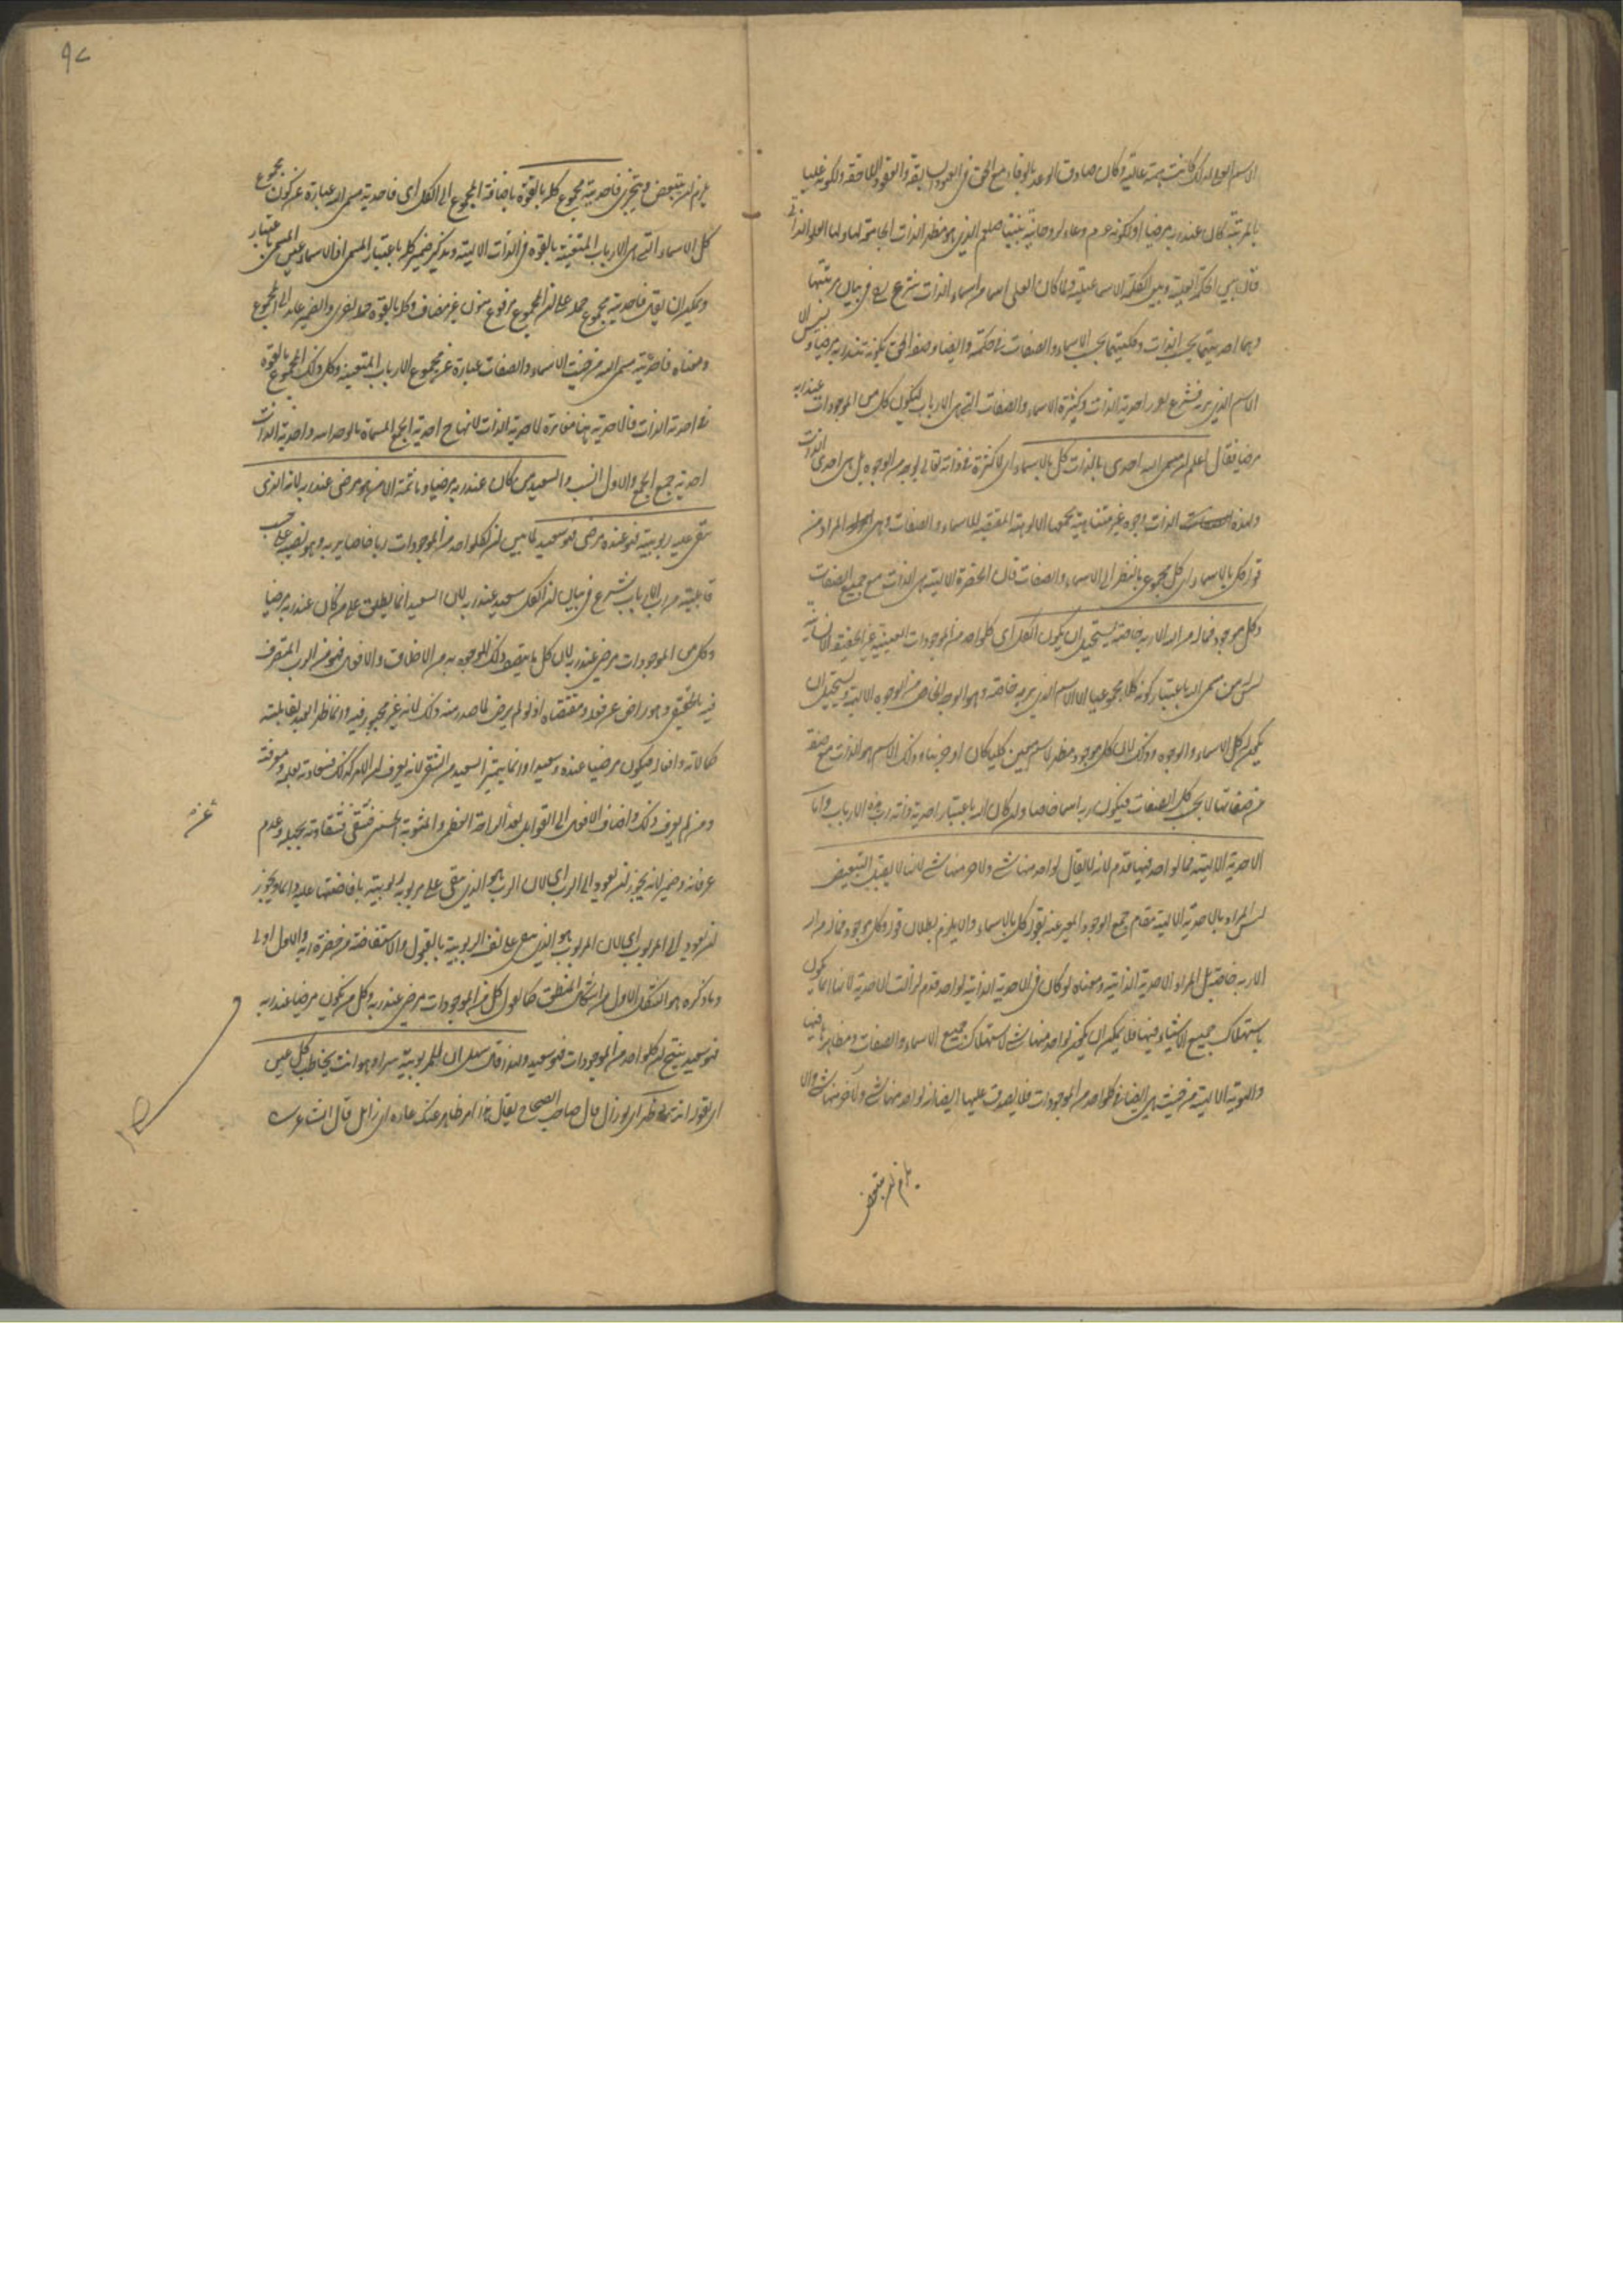 الاسم العلى لذلك كانت همته عالية وكان صادق الوعد بالوفاء مع الحق فى العهود السابقة والعقود اللاحقة ولكونه عليا
بالمرتبة كان عند ربه مرضيا او لكونه وعاء لروحانية نبينا صلعم الذى هو مظهر الذات الجامعة لها ولها العلو الذاتى
بين الحكمة العلية وبين الكلمة الاسماعيلية ولما كان العلى اسما من اسماء الذات شرع فى بيان مرتبتها
وهما احديتها بحسب الذات وكليتها بحسب الاسماء والصفات فى حكمته وايضا وصف الحق بكونه عند ربه مرضيا وليس الا
الاسم الذى يربه فشرع احدية الذات وكثرة الاسماء والصفات التى هى الارباب ليكون كل من الموجودات عند ربه
مرضيا فقال اعلم ان مسمى الله احدى بالذات كل بالاسماء اى لا كثرة فى ذاته تعالى بوجه من الوجوه بل هى احدى الذات
ولهذه الذات وجوه غير متناهية يجمعها الالوهية المقتضية للاسماء والصفات وهى المراد من
قوله كل بالاسماء اى كل مجموع بالنظر الى الاسماء والصفات فان الحضرة الالهية هى الذات مع جميع الصفات
وكل موجود فما له من الله الا ربه خاصة يستحيل ان يكون له الكل اى كل واحد من الموجودات العينية غير الحقيقة الانسانية
ليس له من مسمى الله باعتبار كونه كلا مجموعيا الا الاسم الذى يربه خاصة وهو الوجه الخاص من الوجوه الالهية ويستحيل ان
يكون له كل الاسماء والوجوه وذلك لان كل موجود مظهر لاسم معين كليا كان او جزئيا وذلك الاسم هو الذات مع صفة
من صفاتها لا بحسب كل الصفات فيكون ربه اسما خاصا وان كان الله باعتبار احدية ذاته رب هذه الارباب واما
الاحدية الالهية فما لواحد فيها قدم لانه لا يقال لواحد منها شئ ولآخر منها شئ لانها لا تقبل التبعيض
ليس المراد بالاحدية الالهية مقام جمع الوجود المعبر عنه بقوله كل بالاسماء والا يلزم بطلان قوله وكل موجود فما له من الله
الا ربه خاصة بل المراد الاحدية الذاتية ومعناه لو كان فى الاحدية الذاتية لواحد قدم لزالت الاحدية لانها انما يكون
باستهلاك جميع الاشياء فيها فلا يمكن ان يكون لواحد منها شئ لاستهلاك جميع الاسماء والصفات ومظاهرها فيها
والهوية الالهية من حيث هى ايضا فى كل واحد من الموجودات فلا يصدق عليها ايضا ان لواحد منها شئ ولآخر منها شئ والا
يلزم ان يتبعض
٩٧
يلزم ان يتبعض ويتجزى فاحديته مجموع كله بالقوة باضافة المجموع الى الكل اى فاحدية مسمى الله عبارة عن كون مجموع
كل الاسماء التى هى الارباب المتعينة بالقوة فى الذات الالهية وتذكير ضمير كله باعتبار المسمى اذ الاسماء عين المسمى باعتبار
ويمكن ان يقال فاحديته مجموع جملة على ان المجموع مرفوع منون غير مضاف وكله بالقوة جملة اخرى والضمير عائد الى المجموع
ومعناه فاحدية مسمى الله من حيث الاسماء والصفات عبارة عن مجموع الارباب المتعينة وكل ذلك المجموع بالقوة
فى احدية الذات فالاحدية هنا مغايرة لاحدية الذات لانها احدية الجمع المسماة بالواحدية واحدية الذات
احدية جمع الجمع والاول انسب والسعيد من كان عند ربه مرضيا وما ثمه الا من هو مرضى عند ربه لانه الذى
يبقى عليه ربوبيته فهو عنده مرضى فهو سعيد لما بين ان لكل واحد من الموجودات ربا خاصا يربه وهو نصيبه على حسب
قابليته من رب الارباب شرع فى بيان ان الكل سعيد عند ربه لان السعيد انما يطلق على من كان عند ربه مرضيا
وكل من الموجودات مرضى عند ربه لان كل ما يتصف ذلك الموجود به من الاخلاق والافعال فهو من الرب المتصرف
فيه بالحقيق وهو راض عن فعله ومقتضاه اذ لو لم يرض لما صدر منه ذلك لانه غير مجبور فيه وانما اظهر العبد لقابليته
كمالاته وافعاله فيكون مرضيا عنده وسعيدا وانما يتميز السعيد من الشقى لانه يعرف ان الامر كذلك فسعادته بعلمه ومعرفته
ومن لم يعرف ذلك واضاف الافعال الى القوابل بعد عن الراحة العظمى والمثوبة الحسنى فشقى فشقاوته بجهله وعدم
عرفانه وضمير لانه يجوز ان يعود الى الرب اى لان الرب هو الذى يبقى على مربوبه ربوبيته بافاضتها عليه دائما ويجوز
ان يعود الى المربوب اى لان المربوب هو الذى يبقى على نفسه الربوبية بالقبول والاستفاضة من حضرة ربه والاول اولى
وما ذكره هو الشكل الاول من اشكال المنطق كما يقول كل من الموجودات مرضى عند ربه وكل من يكون مرضيا عند ربه
فهو سعيد ينتج ان كل واحد من الموجودات فهو سعيد ولهذا قال سهل ان للربوبية سرا وهو انت يخاطب كل عين
اى بقوله انت لو ظهر اى لو زال قال صاحب الصحاح يقال هذا امر ظاهر عنك عاره اى زائل قال الشاعر